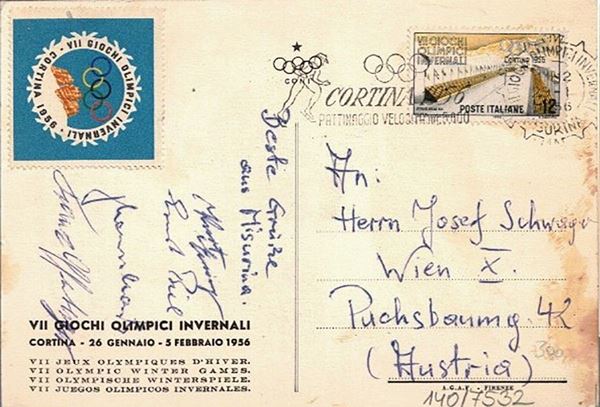 VII GIOCHI OLIMPICI INVERNALI
CORTINA 1956
CONI
CORTINA 1956
PATTINAGGIO VELOCITA
VII GIOCHI
OLIMPICI
INVERNALI
CORTINA 1956
POSTE ITALIANE
12
Beste Grüße
aus Misurina.
An:
Herrn Josef Schwager
Wien X.
Puchsbaumg. 42
(Austria)
300
VII GIOCHI OLIMPICI INVERNALI
CORTINA - 26 GENNAIO - 5 FEBBRAIO 1956
VII JEUX OLYMPIQUES D'HIVER.
VII OLYMPIC WINTER GAMES.
VII OLYMPISCHE WINTERSPIELE.
VII JUEGOS OLIMPICOS INVERNALES.
A.G.A.F. FIRENZE
140/7532